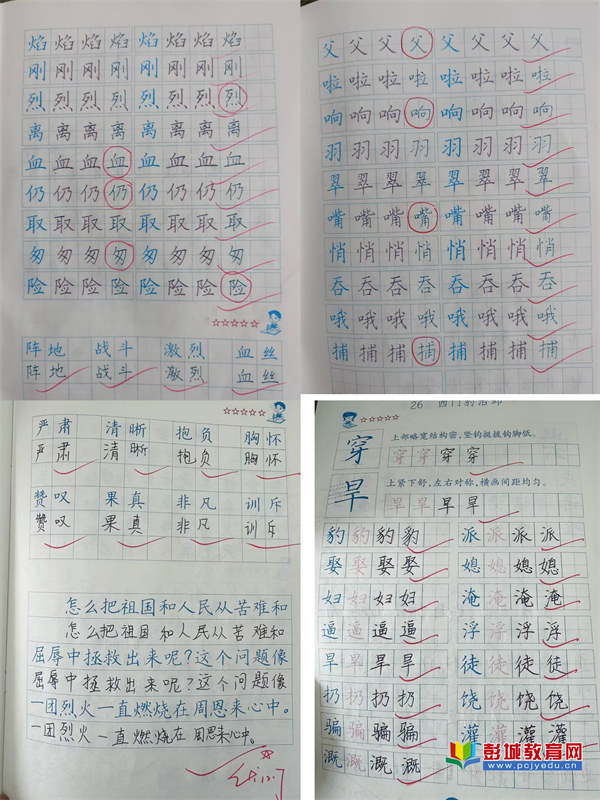 焰焰焰焰焰焰焰焰
刚刚刚刚刚刚刚刚
烈烈烈烈烈烈烈烈
离离离离离离离离
血血血血血血血血
仍仍仍仍仍仍仍仍
取取取取取取取取
匆匆匆匆匆匆匆匆
险险险险险险险险
☆☆☆☆☆
阵地 战斗 激烈 血丝
阵地 战斗 激烈 血丝
父父父父父父父父
啦啦啦啦啦啦啦啦
响响响响响响响响
羽羽羽羽羽羽羽羽
翠翠翠翠翠翠翠翠
嘴嘴嘴嘴嘴嘴嘴嘴
悄悄悄悄悄悄悄悄
吞吞吞吞吞吞吞吞
哦哦哦哦哦哦哦哦
捕捕捕捕捕捕捕捕
☆☆☆☆☆
严肃 清晰 抱负 胸怀
严肃 清晰 抱负 胸怀
赞叹 果真 非凡 训斥
赞叹 果真 非凡 训斥
怎么把祖国和人民从苦难和
怎么把祖国和人民从苦难和
屈辱中拯救出来呢?这个问题像
屈辱中拯救出来呢?这个问题像
一团烈火一直燃烧在周恩来心中。
一团烈火一直燃烧在周恩来心中。
26 西门豹治邺
☆☆☆☆☆
穿 上部略宽结构密,竖钩挺拔钩脚低。
穿穿穿穿
旱 上紧下舒,左右对称,横画间距均匀。
旱旱旱旱
豹豹豹豹 派派派派
娶娶娶娶 媳媳媳媳
妇妇妇妇 淹淹淹淹
逼逼逼逼 浮浮浮浮
旱旱旱旱 徒徒徒徒
扔扔扔扔 饶饶饶饶
骗骗骗骗 灌灌灌灌
溉溉溉溉
彭城教育网
www.pcjyedu.cn